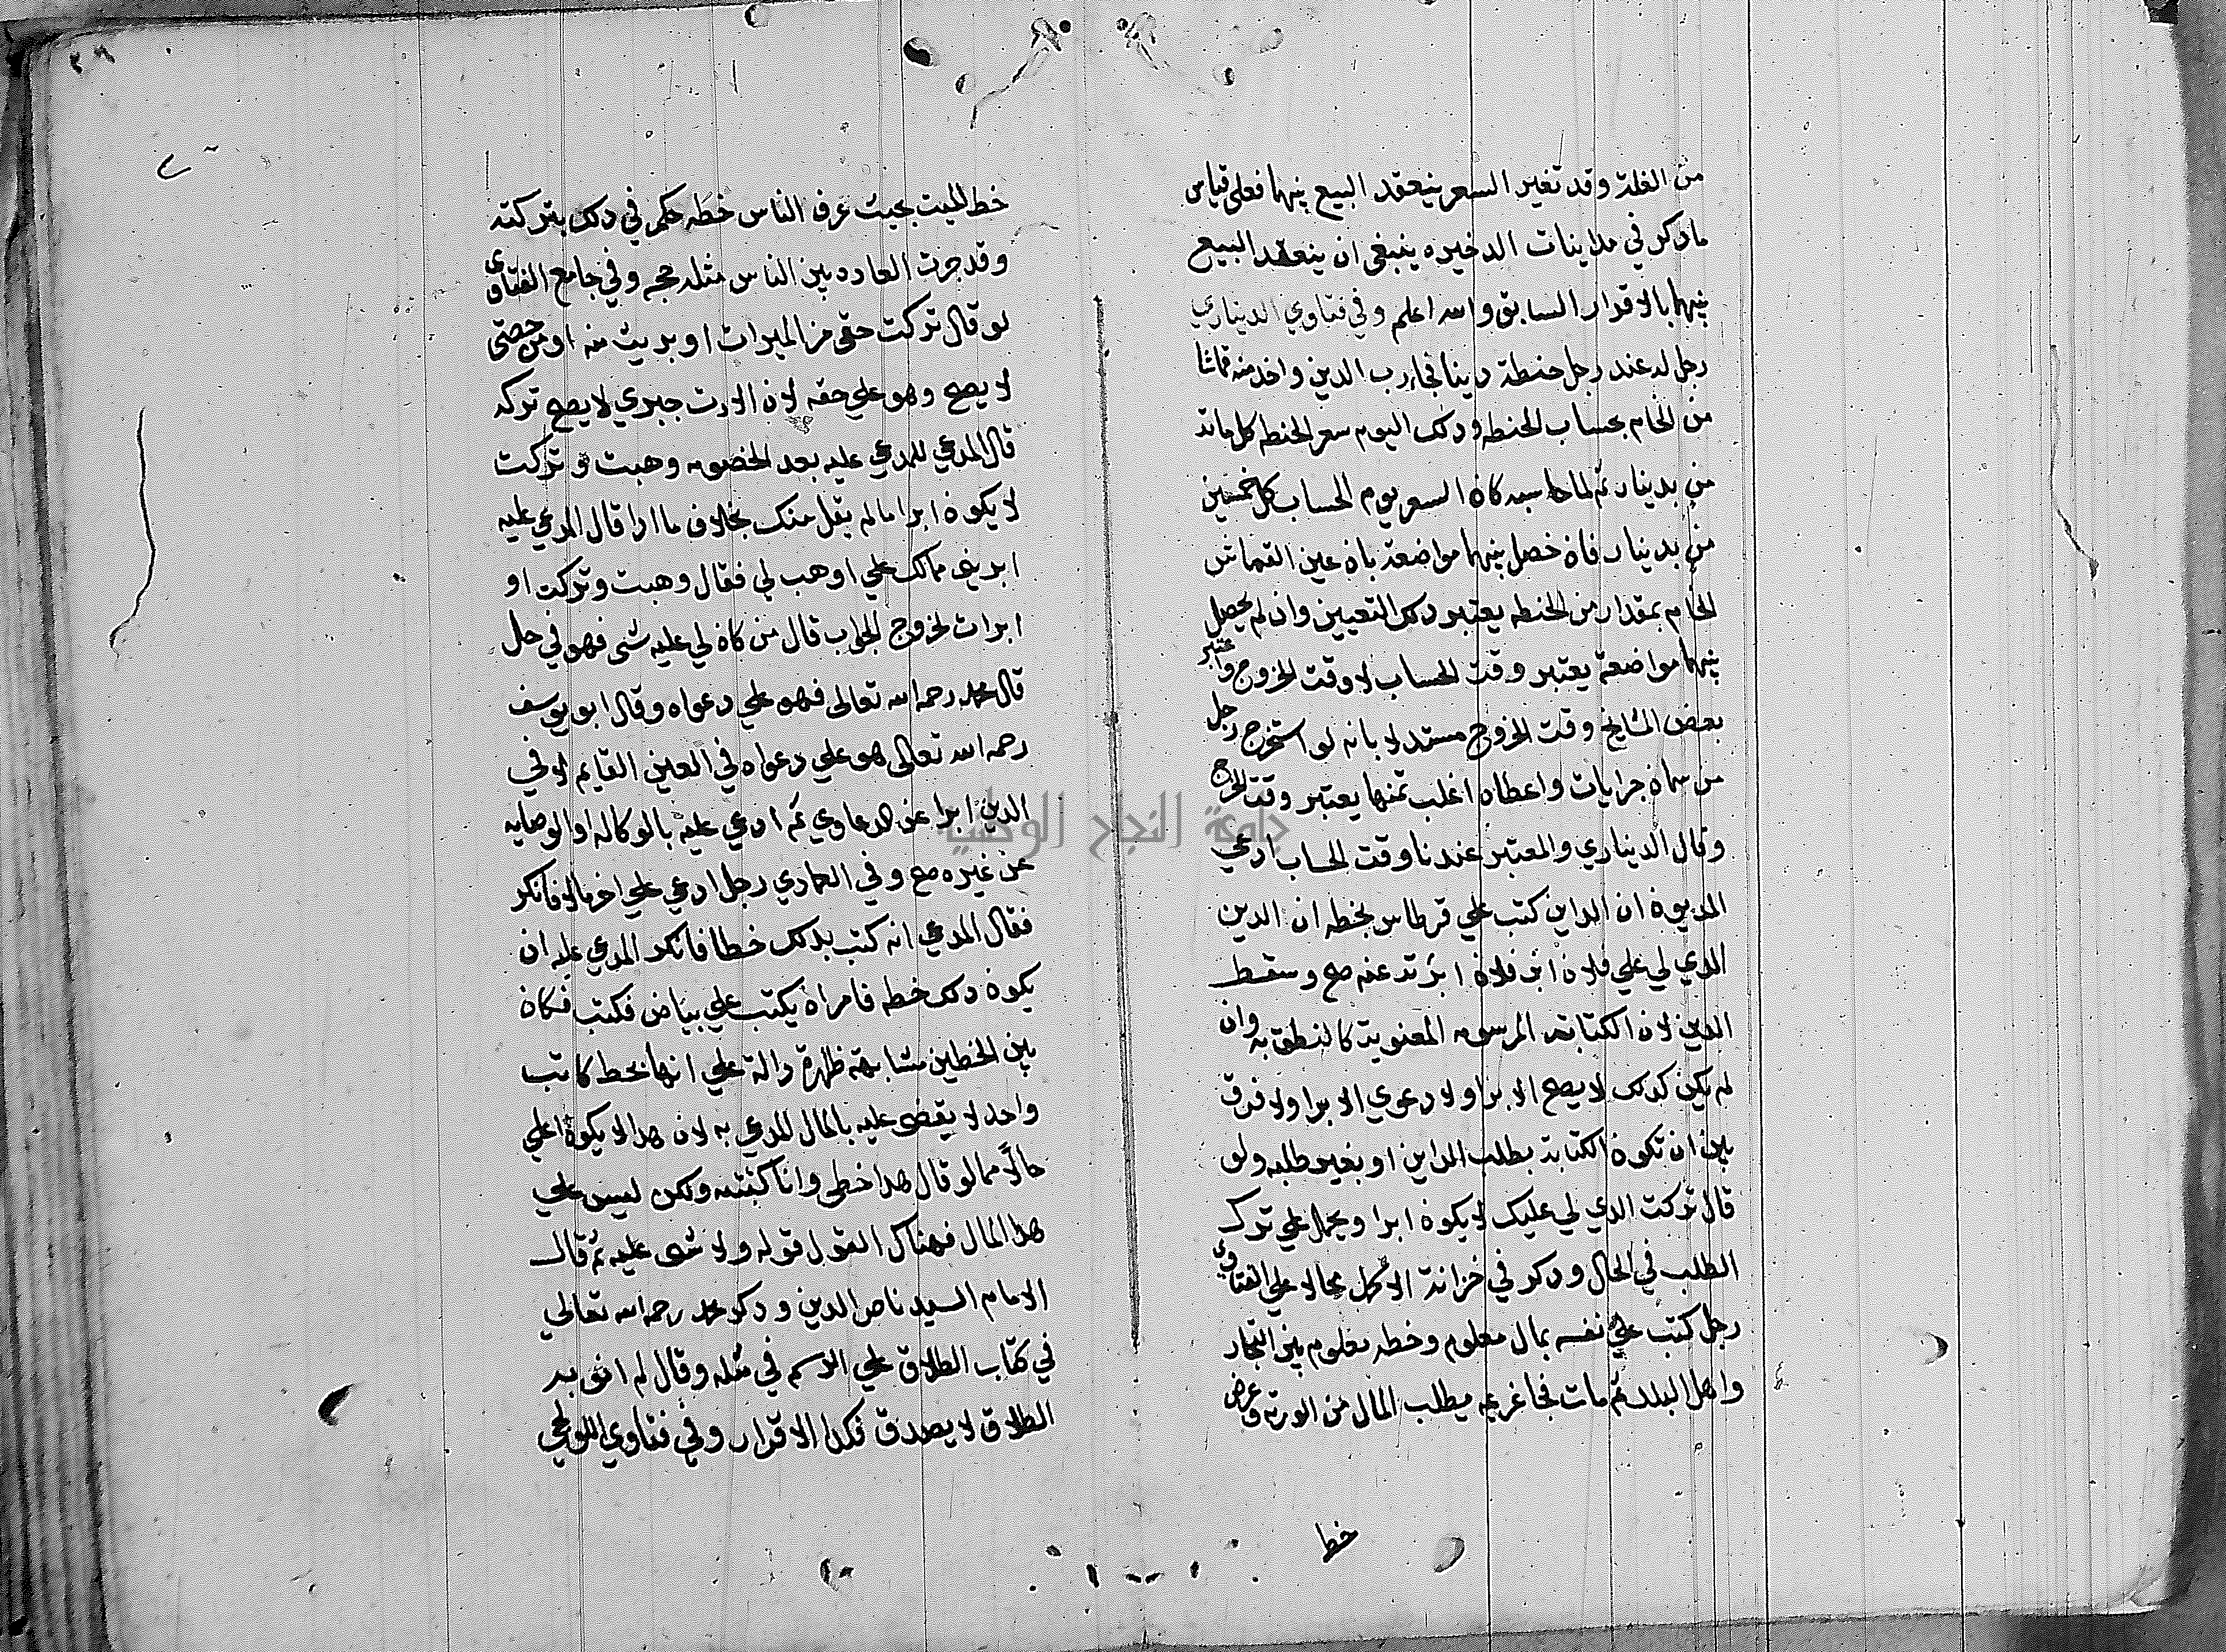 من الغلة وقد تغير السعر ينعقد البيع بينهما فعلى قياس
ما دكر في مداينات الدخيره ينبغي ان ينعقد البيع
بينهما بالاقرار السابق والله اعلم وفي فتاوي الديناري
رجل له عند رجل حنطة دينا فجا رب الدين واخد منه قماشا
من الخام بحساب الحنطه ودلك اليوم سعر الحنطه كل مائة
من بدينار ثم لما حاسبه كان السعر يوم الحساب كل خمسين
من بدينار فان حصل بينهما مواضعة بان عين القماش
الخام بمقدار من الحنطه يعتبر دلك التعيين وان لم يحصل
بينهما مواضعة يعتبر وقت الحساب لا وقت الخروج واعتبر
بعض المشايخ وقت الخروج مستدلا بانه لو استخرج رجل
من سمان جرايات واعطاه اغلب ثمنها يعتبر وقت الخرج
وقال الديناري والمعتبر عندنا وقت الحساب ادعي
المديون ان الداين كتب علي قرطاس بخطه ان الدين
الدي لي علي فلان ابن فلان ابرته عنه صح وسقط
الدين لان الكتابة المرسومه المعنوية كالنطق به وان
لم يكن كدلك لا يصح الابرا ولا دعوي الابرا ولا فرق
بين ان تكون الكتابة بطلب الداين او بغير طلبه ولو
قال تركت الدي لي عليك لا يكون ابرا ويحمل علي ترك
الطلب في الحال ودكر في خزانة الاكمل محالا علي الفتاوي
رجل كتب علي نفسه بمال معلوم وخطه معلوم بين التجار
واهل البلد ثم مات فجا غريمه يطلب المال من الورثه وعرض
خط
٢٨
خط الميت بحيث عرف الناس خطه حكم في دلك بتركته
وقد جرت العاده بين الناس مثله حجه وفي جامع الفتاوى
لو قال تركت حقي من الميراث او بريت منه او من حصتي
لا يصح وهو علي حقه لان الارث جبري لا يصح تركه
قال المدعي للمدعي عليه بعد الخصومه وهبت وتركت
لا يكون ابرا ما لم يقل منك بخلاف ما ادا قال المدعي عليه
ابريني مما لك علي او هب لي فقال وهبت وتركت او
ابرات لخروج الجواب قال من كان لي عليه شي فهو في حل
قال محمد رحمه الله تعالى فهو علي دعواه وقال ابو يوسف
رحمه الله تعالى هو علي دعواه في العين القايم لا في
الدين ابرا عن الدعاوي ثم ادعي عليه بالوكاله او الوصايه
عن غيره صح وفي العمادي رجل ادعي علي اخر مالا فانكر
فقال المدعي انه كتب بدلك خطا فانكر المدعي عليه ان
يكون دلك خطه فامر ان يكتب علي بياض فكتب فكان
بين الخطين مشابهة ظاهرة دالة علي انها بخط كاتب
واحد لا يقضى عليه بالمال المدعي به لان هدا لا يكون اعلي
حالًا مما لو قال هدا خطي وانا كتبته ولكن ليس علي
هدا المال فهناك القول قوله ولا شي عليه ثم قال
الامام السيد ناصر الدين ودكر محمد رحمه الله تعالي
في كتاب الطلاق علي الرسم في مثله وقال لم انو به
الطلاق لا يصدق فكدا الاقرار وفي فتاوي